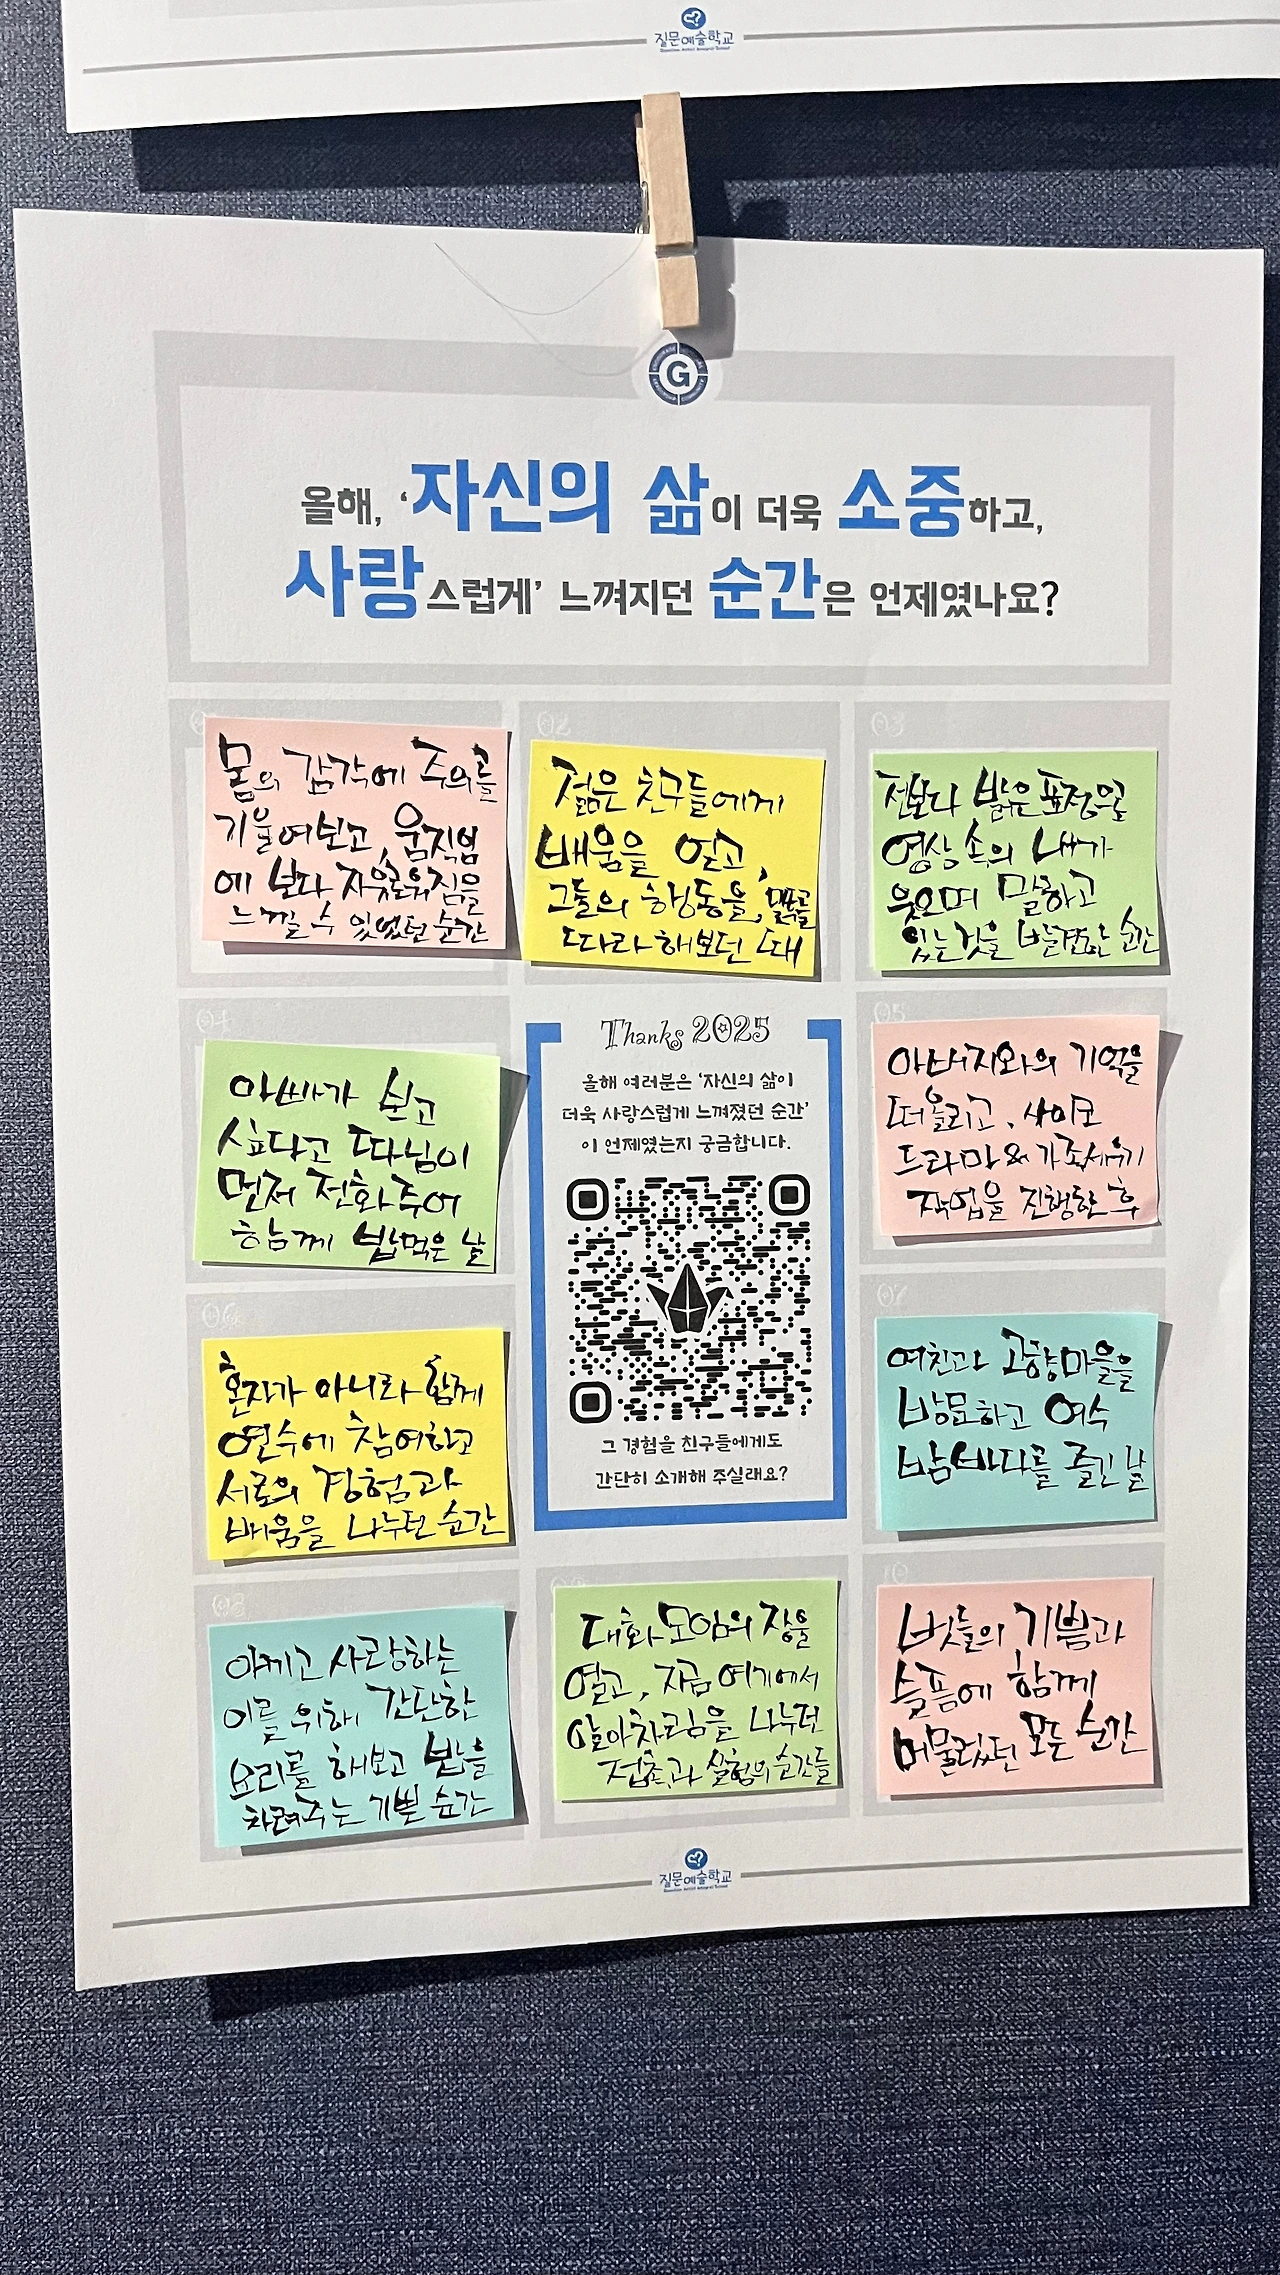 질문예술학교
G
올해, '자신의 삶이 더욱 소중하고,
사랑스럽게' 느껴지던 순간은 언제였나요?
몸의 감각에 주의를
기울여보고, 움직임
에 보다 자유로워짐을
느낄 수 있었던 순간
02
젊은 친구들에게
배움을 얻고,
그들의 행동을, 말투를
따라해보던 때
03
전보다 밝은 표정으로
영상 속의 내가
웃으며 말하고
있는 것을 발견한 순간
04
아빠가 보고
싶다고 따님이
먼저 전화주어
함께 밥먹은 날
Thanks 2025
올해 여러분은 '자신의 삶이
더욱 사랑스럽게 느껴졌던 순간'
이 언제였는지 궁금합니다.
그 경험을 친구들에게도
간단히 소개해 주실래요?
05
아버지와의 기억을
떠올리고, 사이코
드라마 & 가족세우기
작업을 진행한 후
06
혼자가 아니라 함께
연수에 참여하고
서로의 경험과
배움을 나누던 순간
07
여친과 고향마을을
방문하고 여수
밤바다를 즐긴 날
08
아끼고 사랑하는
이를 위해 간단한
요리를 해보고 밥을
차려주는 기쁜 순간
대화모임의 장을
열고, 지금 여기에서
알아차림을 나누던
접촉과 실험의 순간들
10
벗들의 기쁨과
슬픔에 함께
머물렀던 모든 순간
질문예술학교